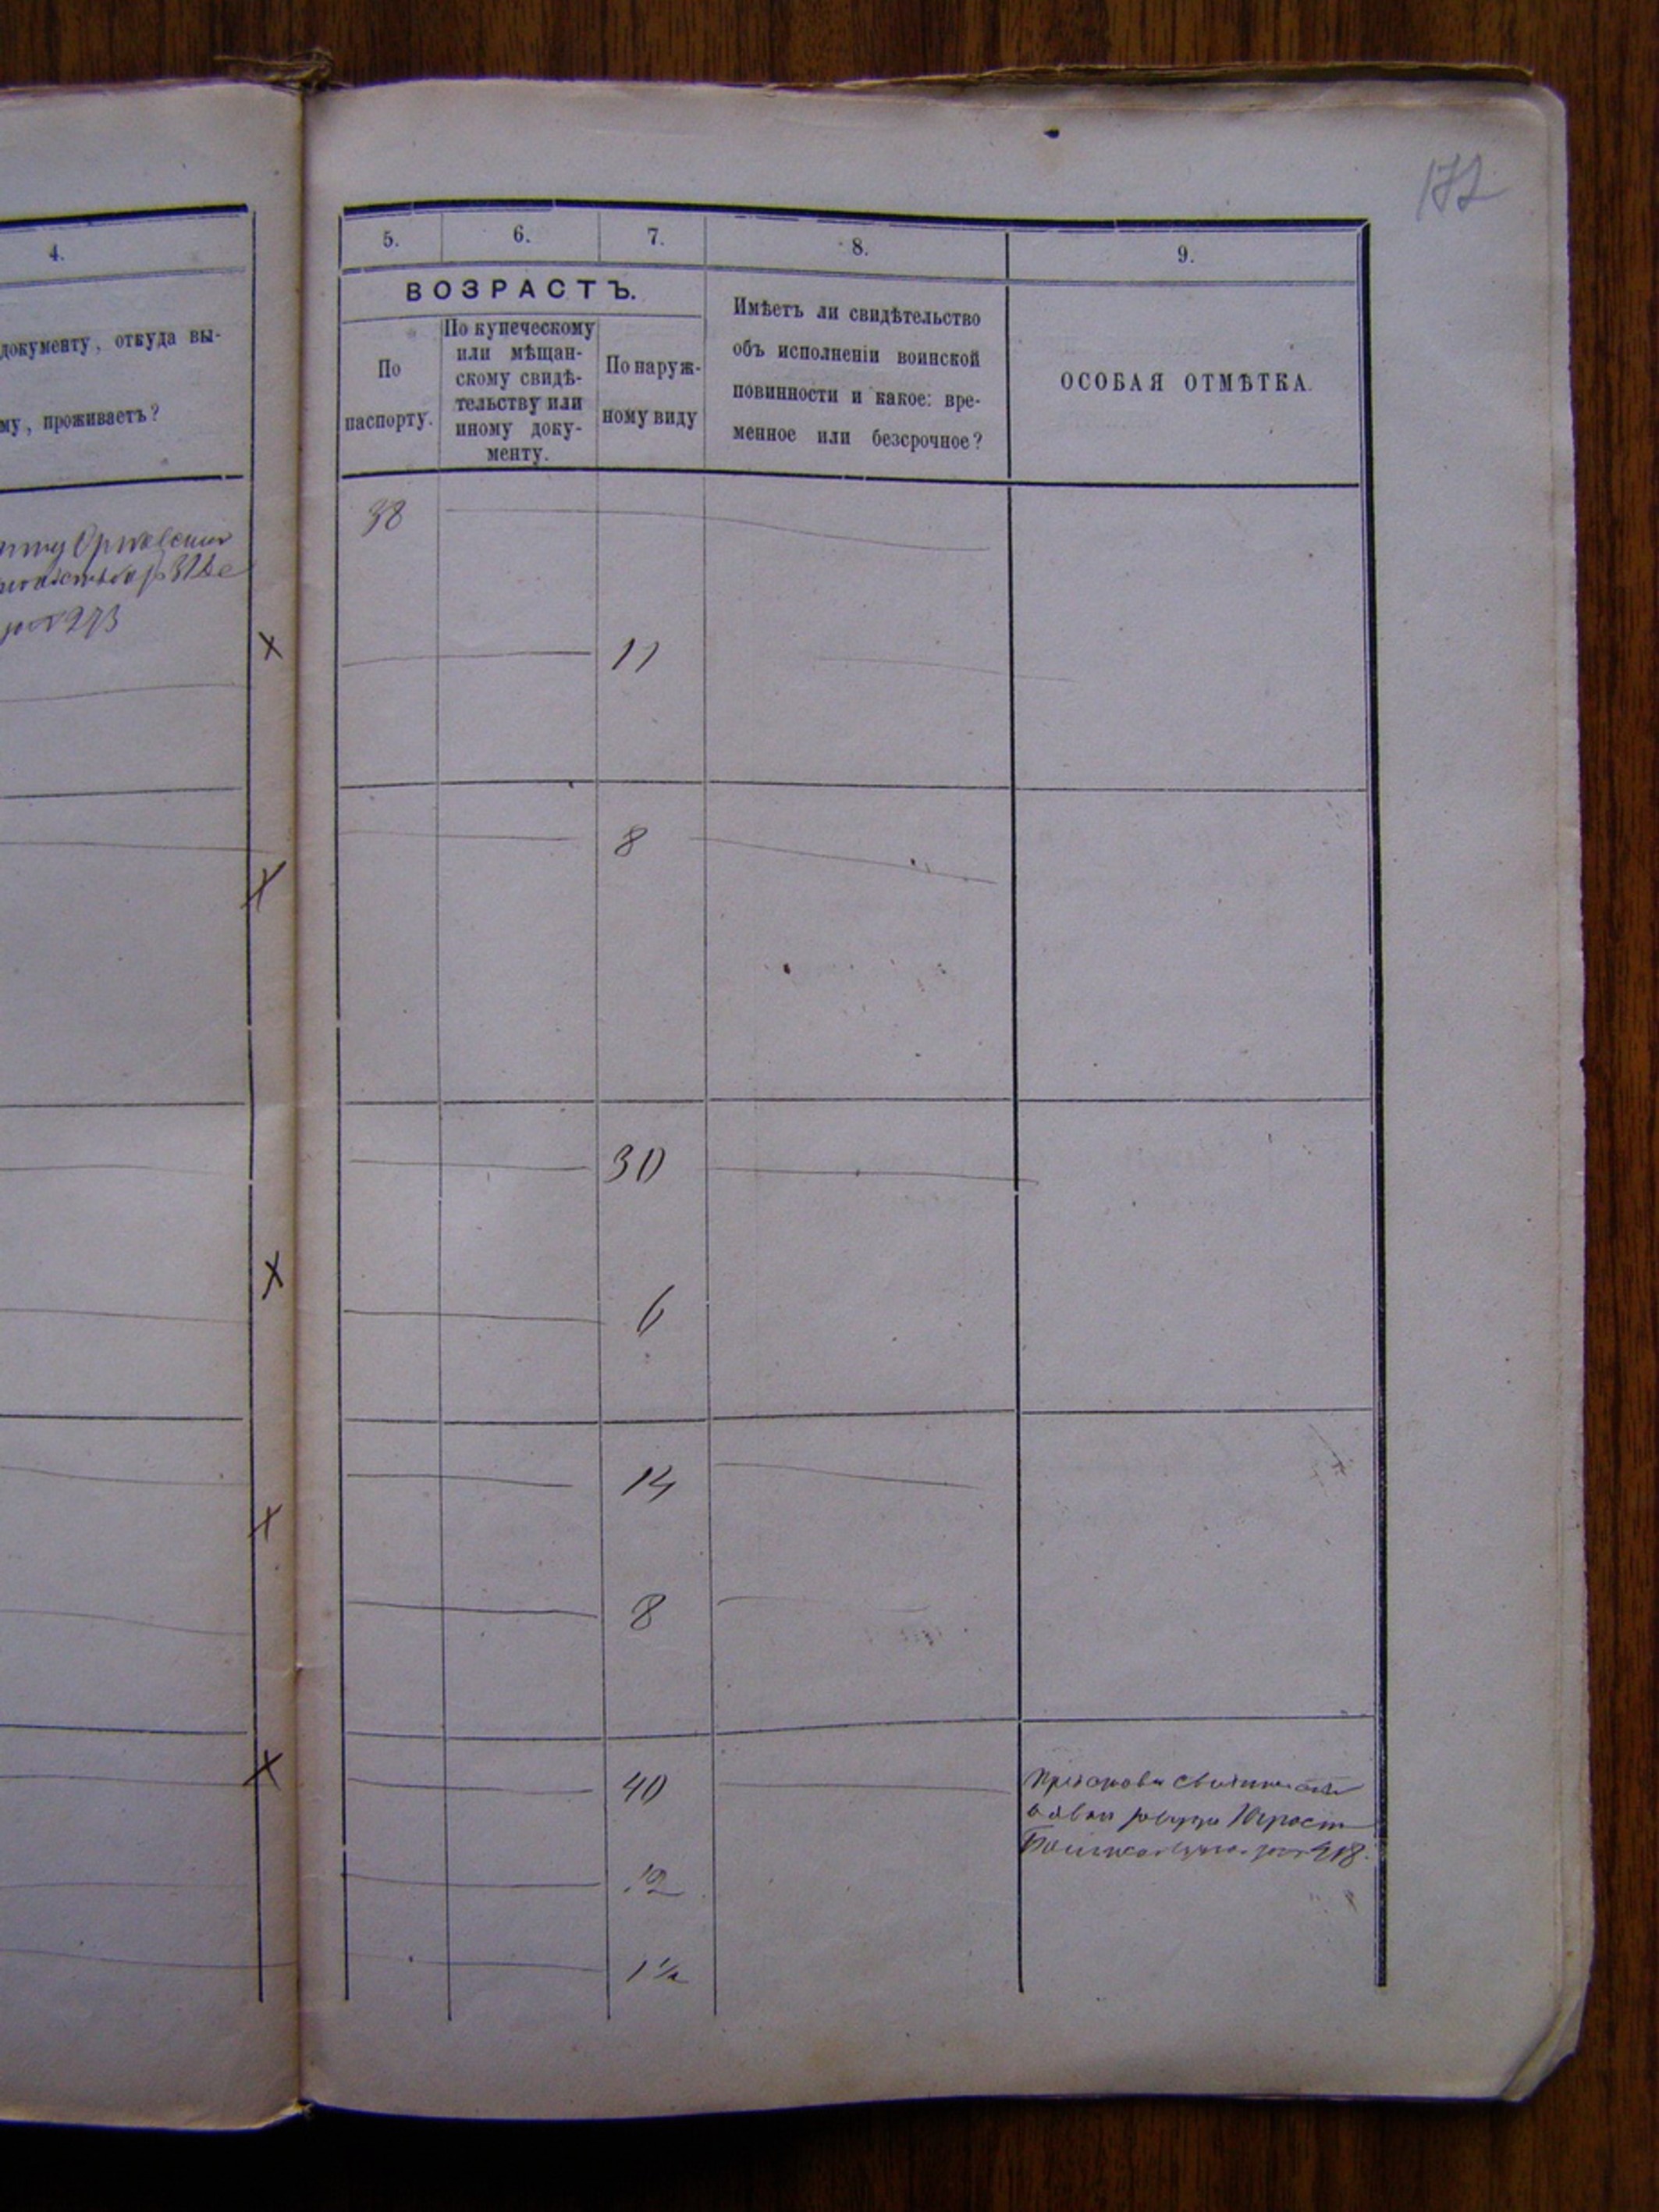 172
4.
документу, откуда вы-
му, проживаетъ?
273
5.
6.
7.
8.
9.
ВОЗРАСТЪ.
По
паспорту.
По купеческому
или мѣщан-
скому свидѣ-
тельству или
иному доку-
менту.
По наруж-
ному виду
Имѣетъ ли свидѣтельство
объ исполненіи воинской
повинности и какое: вре-
менное или безсрочное?
ОСОБАЯ ОТМѢТКА.
38
11
8
30
6
14
8
40
12
1½